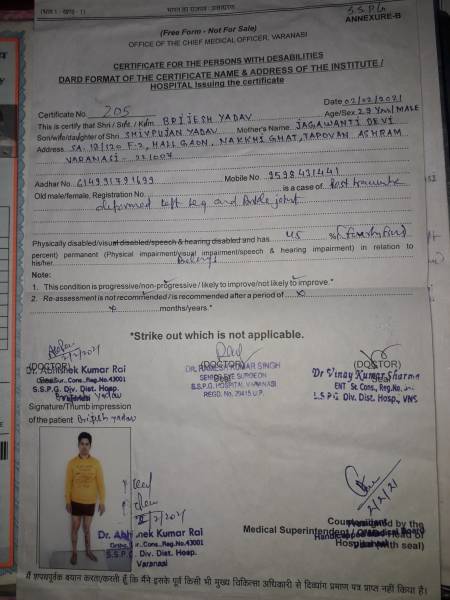 (भाग 1 - खण्ड-1)
S.S.P.G
ANNEXURE-B
(Free Form - Not For Sale)
OFFICE OF THE CHIEF MEDICAL OFFICER, VARANASI
CERTIFICATE FOR THE PERSONS WITH DESABILITIES
DARD FORMAT OF THE CERTIFICATE NAME & ADDRESS OF THE INSTITUTE /
HOSPITAL Issuing the certificate
Certificate No. 205 Date 02/02/2021
This is certify that Shri / Smt. / Kum BRIJESH YADAV Age/Sex 29 Yrs/MALE
Son/wife/daughter of Shri SHIVPUJAN YADAV Mother's Name JAGAWANTI DEVI
Address SA. 18/120 F-2, HALL GAON, NAKKHI GHAT, TAPOVAN ASHRAM
VARANASI - 221007
Aadhar No. Mobile No.
Old male/female, Registration No. is a case of Post traumatic
deformed left leg and Ankle joint
Physically disabled/visual disabled/speech & hearing disabled and has 45 %( Fourty five)
percent) permanent (Physical impairment/visual impairment/speech & hearing impairment) in relation to
his/her.
Note:
1. This condition is progressive/non-progressive / likely to improve/not likely to improve.*
2. Re-assessment is not recommended / is recommended after a period of x
x months/years.*
*Strike out which is not applicable.
2/2/2021
(DOCTOR) (DOCTOR) (DOCTOR)
Dr. Abhishek Kumar Rai DR. KUMAR SINGH Dr Vinay Kumar Sharma
Ortho Sur., Cons., Reg.No.43001 SENIOR EYE SURGEON ENT Sr. Cons., Reg.No.
S.S.P.G. Div. Dist. Hosp. S.S.P.G. HOSPITAL, VARANASI S.S.P.G. Div. Dist. Hosp., VNS
Varanasi REGD. NO. 29415 U.P.
Brijesh Yadav
Signature/Thumb impression
of the patient Brijesh Yadav
2/2/2021
2/2/21
Dr. Abhishek Kumar Rai
Ortho Sur., Cons., Reg.No.43001
S.S.P.G. Div. Dist. Hosp.
Varanasi
Countersigned by the
Medical Superintendent / CMO / Head of
Handicapped Medical Board
Hospital (with seal)
मैं शपथपूर्वक बयान करता/करती हूँ कि मैंने इसके पूर्व किसी भी मुख्य चिकित्सा अधिकारी से दिव्यांग प्रमाण पत्र प्राप्त नहीं किया है।